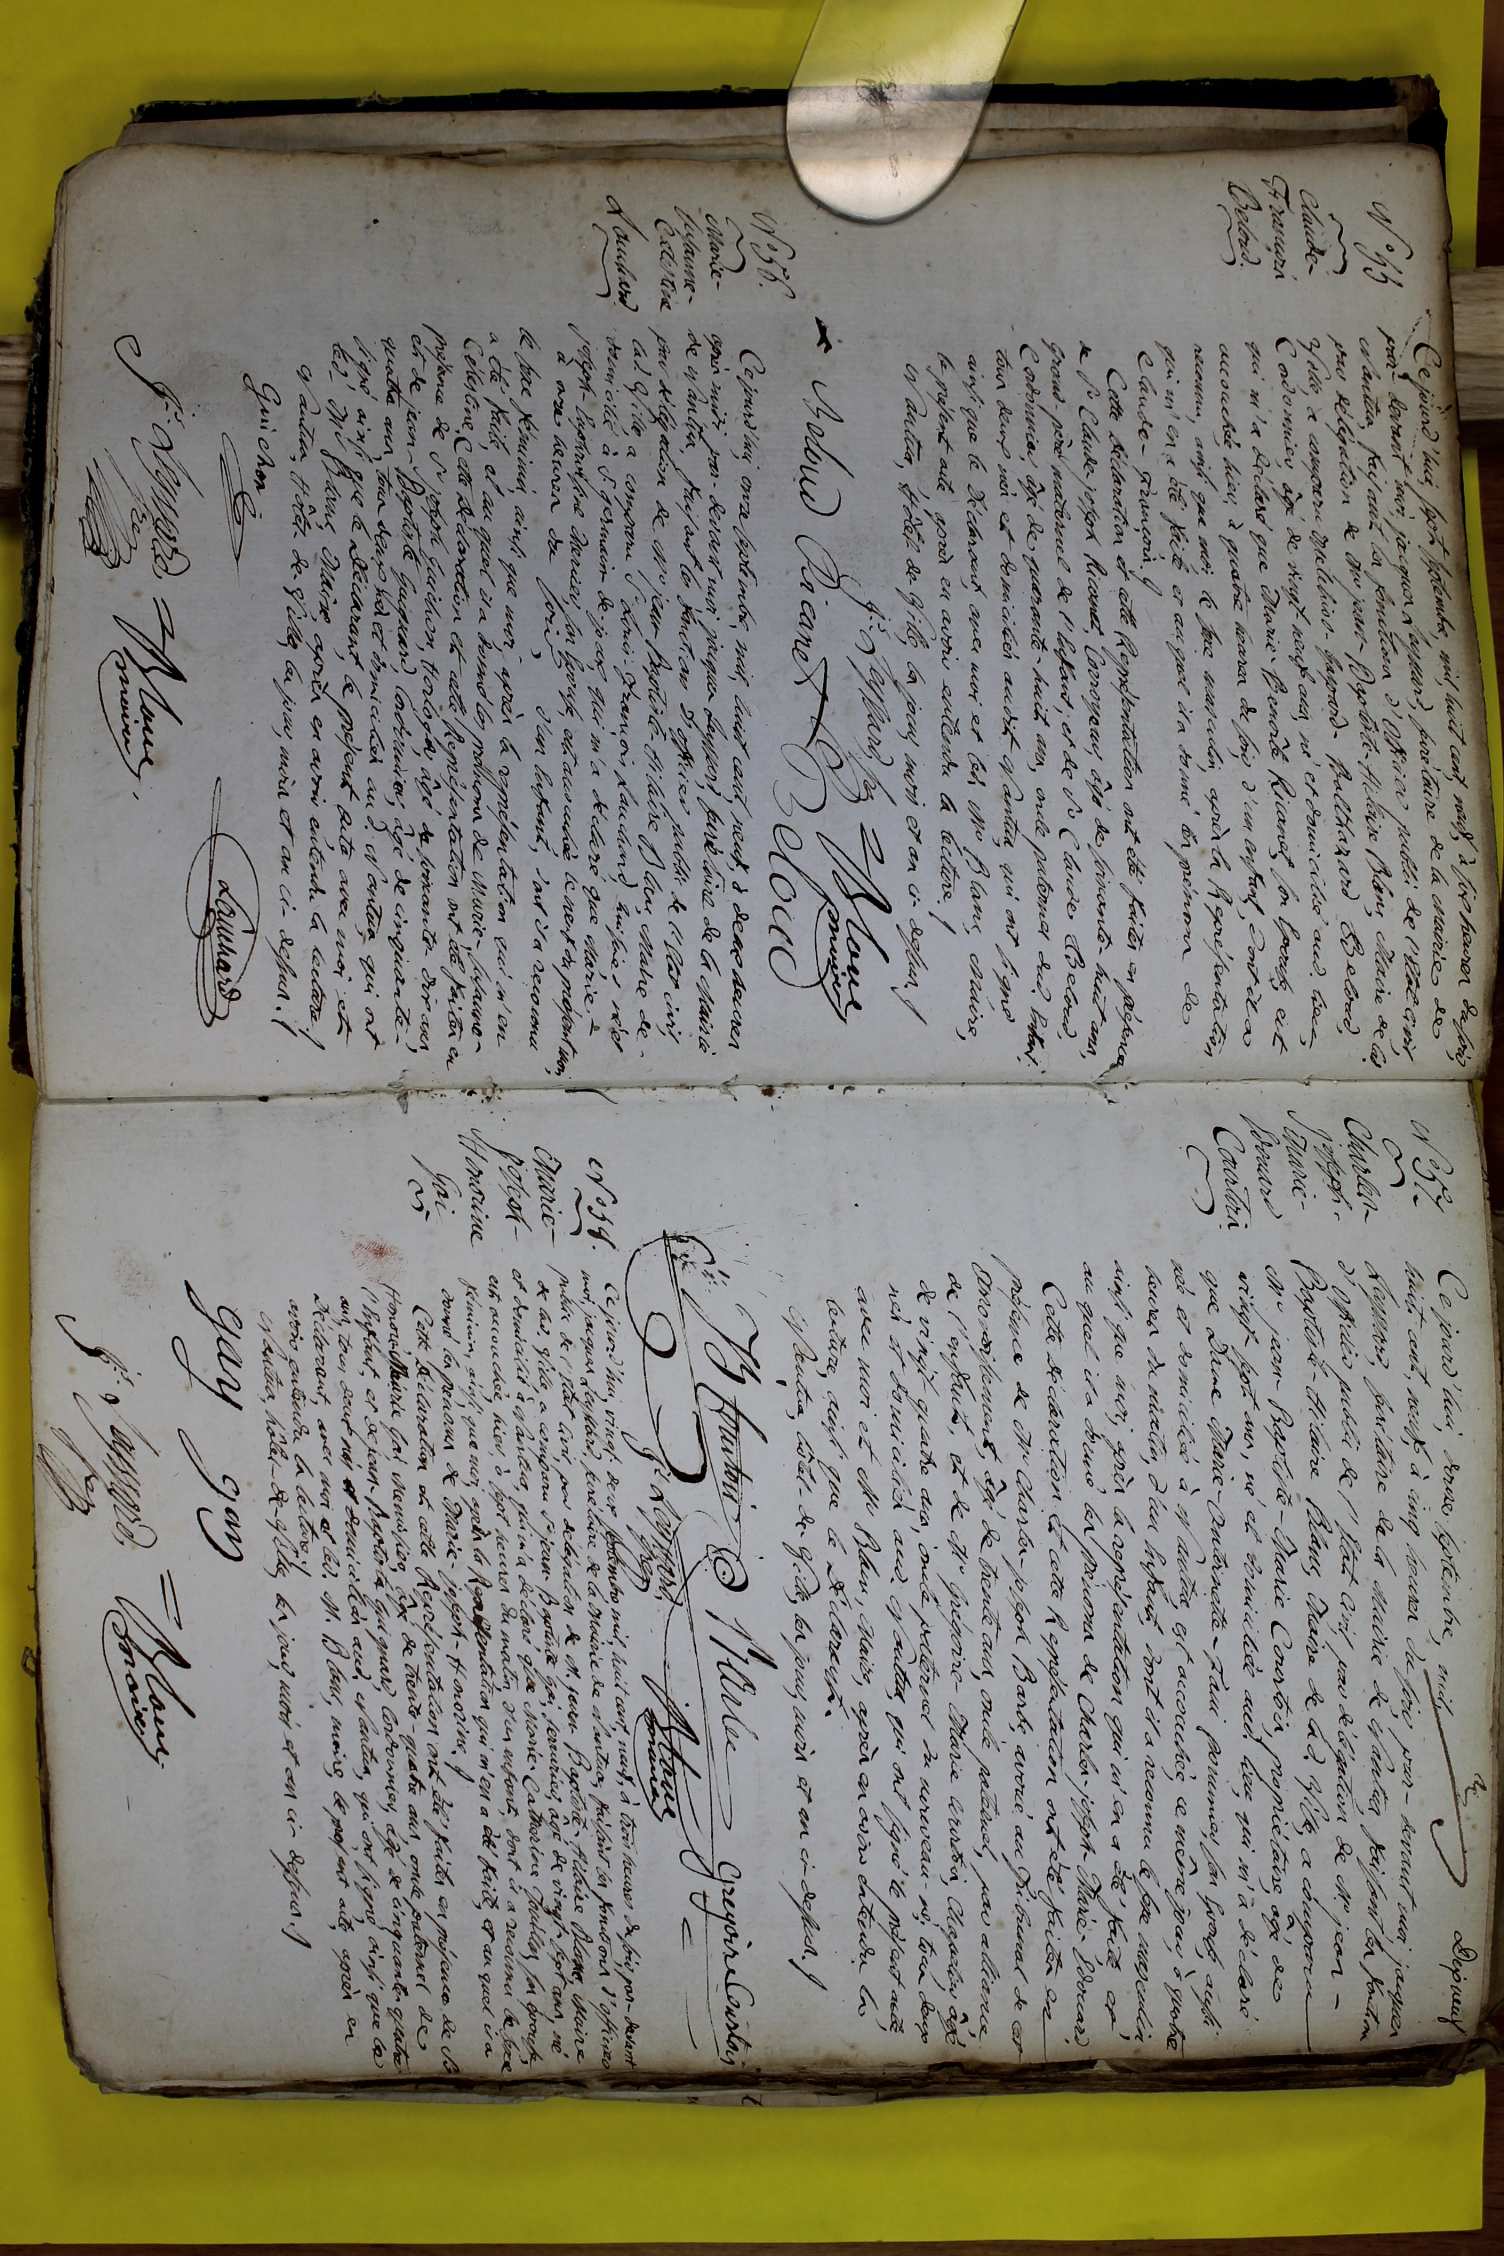 N.° 55
Claude-
François
Beloud.
Ce jourd'hui sept septembre, mil huit cent neuf, à six heures du soir,
par-devant moi jacques Leyssard, secrétaire de la mairie de
Nantua, faisant la fonction d'officier public de l'état civil,
par délégation de M.r jean-Baptiste-Hilaire Blanc, Maire de lad.
Ville, a comparu Beloud,
Cordonnier, âgé de vingt neuf ans, né et domicilié aud. lieu,
qui m'a déclaré que Marie-Benoite Ricanet, son épouse, est
accouchée hier, à quatre heures du soir d'un enfant, dont il a
reconnu, ainsi que moi le sexe masculin, après la Représentation
qui m'en a été faite et auquel il a donné les prénoms de
Claude-François.
Cette déclaration et cette Représentation ont été faites en présence
de S.r Claude-joseph Ricanet, Corroyeur, âgé de soixante-huit ans,
Grand-père maternel de l'enfant, et de S.r Claude Beloud,
Cordonnier, âgé de quarante-huit ans, oncle paternel dud. enfant;
tous deux nés et domiciliés audit Nantua, qui ont signé
ainsi que le Déclarant, avec moi et led. M.r Blanc, Maire,
le présent acte, après en avoir entendu la lecture.
Nantua, Hôtel de Ville, les jour, mois et an ci-dessus.
J.s Leyssard, Sec
Blanc
maire
Beloud Ricanet Beloud
N.° 56.
Marie-
Susanne-
Célestine
Louchard
Ce jourd'hui, onze septembre, mil huit cent neuf, à deux heures
après midi, par-devant moi jacques Leyssard, secrétaire de la Mairie
de Nantua, faisant les fonctions d'officier public de l'état civil,
par délégation de M.r jean-Baptiste-Hilaire Blanc, Maire de-
lad. Ville, a comparu S.r Louis-François Louchard, né et
domicilié à S.t Germain de joux qui m'a déclaré que Marie-
joseph- Mercier, son épouse, est accouchée le neuf du présent mois,
à onze heures du soir, d'un enfant, dont il a reconnu
le sexe féminin, ainsi que moi, après la représentation qui m'en
a été faite, et auquel il a donné les prénoms de Marie-Susanne-
Célestine. Cette déclaration et cette Représentation ont été faites en
présence de S.r joseph Guichon, Horloger, âgé de soixante-dix ans,
et de jean-Baptiste Guignard, Cordonnier, âgé de cinquante-
quatre ans, tous deux nés et domiciliés aud. Nantua, qui ont
signé ainsi que le Déclarant, le présent acte avec moi et
led. M.r Blanc, Maire, après en avoir entendu la lecture.
Nantua, Hôtel de Ville, les jour, mois et an ci-dessus.
Guichon
Louchard
J.s Leyssard
Sec
Blanc
maire
N.° 57.
Charles-
joseph-
Marie-
Edouard
Courtois
Ce jourd'hui, douze septembre, mil
huit cent, neuf, à cinq heures du soir par-devant moi jacques
Leyssard, secrétaire de la Mairie de Nantua faisant les fonctions
d'officier public de l'état civil par délégation de M.r jean-
Baptiste-Hilaire Blanc, Maire de lad. Ville, a comparu
M.r jean-Baptiste-Marie Courtois, propriétaire, âgé de
vingt sept ans, né et domicilié audit lieu, qui m'a déclaré
que Dame Marie-Antoinette- son épouse, aussi
née et domiciliée à Nantua est accouchée, ce même jour, à quatre
heures du matin, d'un Enfant, dont il a reconnu le sexe masculin
ainsi que moi, après la représentation qui m'en a été faite et
auquel il a donné les prénoms de Charles-joseph-Marie-Edouard
Cette déclaration et cette Représentation ont été faites en
présence de M.r Charles-joseph Barbe, avoué au Tribunal de cet
arrondissement, âgé de trente ans, oncle paternel, par alliance,
de l'enfant, et de M.r Grégoire-Marie Courtois, âgé
de vingt quatre ans, oncle paternel du nouveau-né, tous deux
nés et domiciliés aud. Nantua, qui ont signé le présent acte
avec moi et M.r Blanc, Maire, après en avoir entendu la
lecture, ainsi que le Déclarant.
Nantua, hôtel de Ville, les jour, mois et an ci-dessus.
J B Courtois Barbe Grégoire Courtois
J.s Leyssard
Sec
Blanc
maire
N.° 58.
Marie-
joseph-
Honorine
Gai
Ce jourd'hui, vingt-deux septembre mil huit cent neuf, à trois heures du soir par-devant
moi, jacques Leyssard, secrétaire de la Mairie de Nantua, faisant les fonctions d'officier
public de l'état civil, par délégation de M. jean-Baptiste-Hilaire Blanc Maire
de lad. Ville, a comparu S.r jean-Baptiste Gai, âgé de vingt-sept ans, né
et domicilié à Nantua, qui m'a déclaré que Marie-Catherine son épouse,
est accouchée, hier à sept heures du matin d'un enfant, dont il a reconnu le sexe
féminin, ainsi que moi, après la Représentation qui m'en a été faite, et auquel il a
donné les prénoms de Marie-joseph-Honorine.
Cette déclaration et cette Représentation ont été faites en présence de S.r
Honoré-Marie Gai, Menuisier, âgé de trente-quatre ans oncle paternel de
l'enfant, et de jean-Baptiste Guignard Cordonnier, âgé de cinquante-quatre
ans, tous deux nés et domiciliés aud. Nantua, qui ont signé ainsi que le
Déclarant, avec moi et led. M. Blanc, maire, le présent acte après en
avoir entendu la lecture.
Nantua, hôtel-de-Ville, les jour, mois et an ci-dessus.
gay gay
J.s Leyssard,
Sec
Blanc
maire